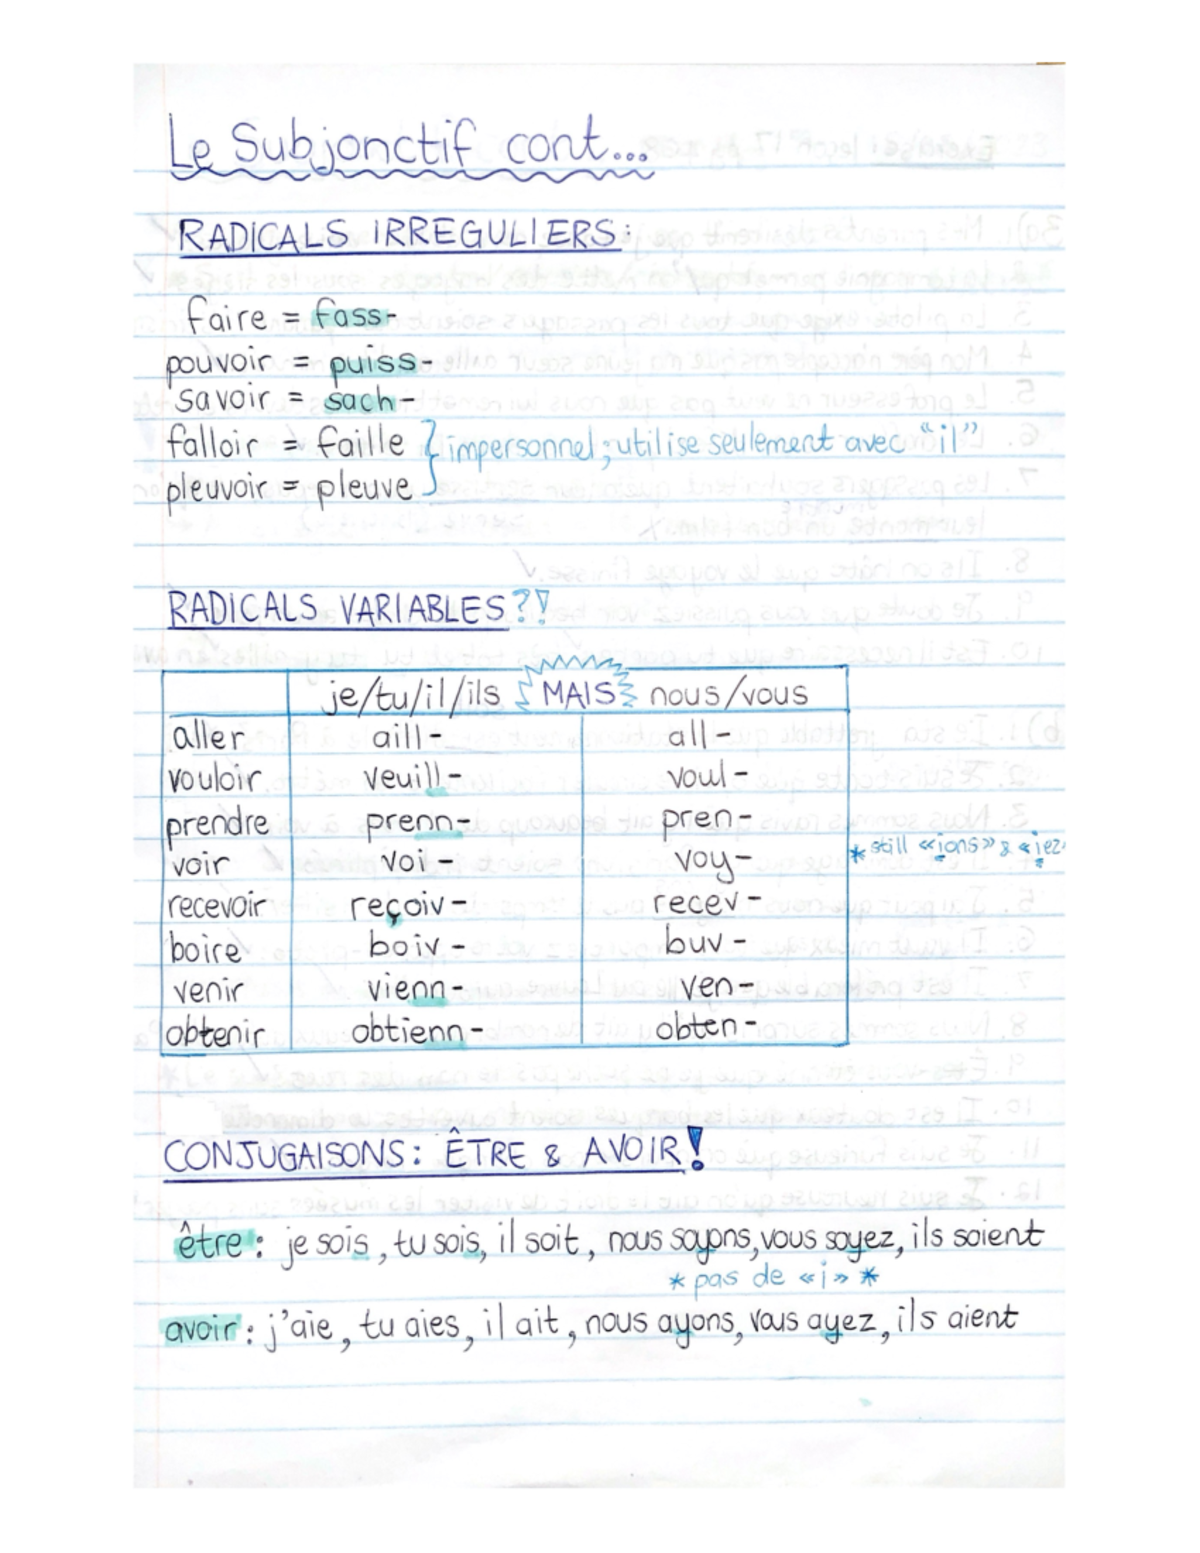 Le Subjonctif cont...
RADICALS IRREGULIERS:
faire = fass-
pouvoir = puiss-
savoir = sach-
falloir = faille } impersonnel; utilise seulement avec "il"
pleuvoir = pleuve
RADICALS VARIABLES?!
je/tu/il/ils MAIS nous/vous
aller aill- all-
vouloir veuill- voul-
prendre prenn- pren-
voir voi- voy- * still «ions» & «iez
recevoir reçoiv- recev-
boire boiv- buv-
venir vienn- ven-
obtenir obtienn- obten-
CONJUGAISONS: ÊTRE & AVOIR!
être: je sois, tu sois, il soit, nous soyons, vous soyez, ils soient
* pas de «i» *
avoir: j'aie, tu aies, il ait, nous ayons, vous ayez, ils aient